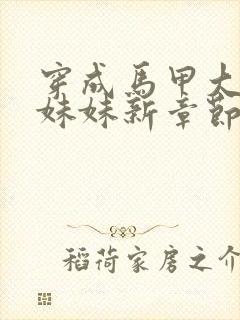 穿成馬甲大
妹妹新章節
稻荷家房之介